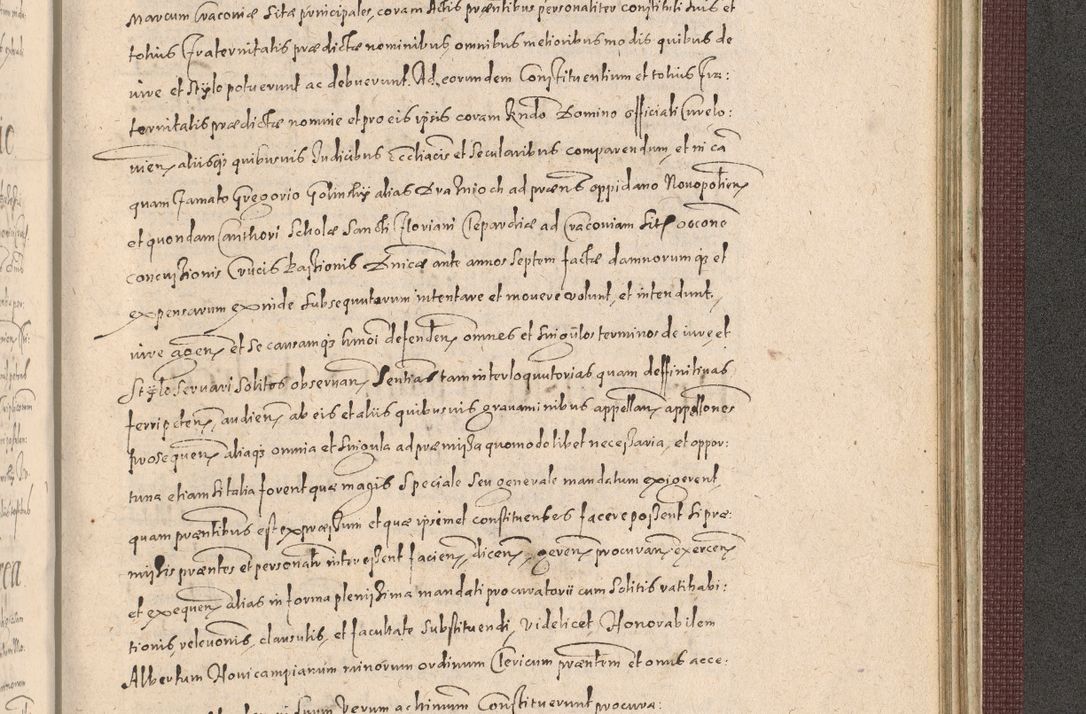 Marcum Cracoviæ Sitæ principales, coram Actis præntibus personaliter constituti suis et
totius Fraternitatis prædictæ nominibus omnibus melioribus modis quibus de
iure et stylo potuerunt ac debuerunt. Ad eorumdem Constituentium et totius Fra:
ternitatis prædictæ nomine et pro eis ipsis coram Rndo Domino officiali Curelo:
vien, aliisq3 quibusuis Judicibus Eccliacis et Secularibus comparendum, et in ca
quam Famato Gregorio Golinsky alias Dratnioch ad præns oppidano Novopolien
et quondam Canthori Scholæ Sancti Floriani Clepardiæ ad Cracoviam Sitæ occone
concussionis Crucis Passionis Dnicæ ante annos Septem factæ damnorumq3 et
expensarum exinde subsequutarum intentare et movere volunt, et intendunt,
iure agen, et se causamq3 hmoi defenden, omnes et singulos terminos de iure, et
Stylo servari solitos observan, Sentias tam interloquutorias quam deffinitivas
ferri peten, audien, ab eis et aliis quibusuis gravaminibus appellan, appellones
prosequen, aliaq3 omnia et singula ad præmissa quomodolibet necessaria, et oppor:
tuna etiam si talia forent quæ magis speciale seu generale mandatum exigerent,
quam præntibus est expræssum et quæ ipsimet constituentes facere possent si præ:
missis præntes et personalr interessent facien, dicen, geren, procuran, exercen,
et exequen, alias in forma plenissima mandati procuratorii cum solitis ratihabi:
tionis, relevonis, clausulis, et facultate substituendi, videlicet Honorabilem
Albertum Novicampianum minorum ordinum Clericum præntem et onus acce:
suum verum ac ltimum Constituerunt procura: